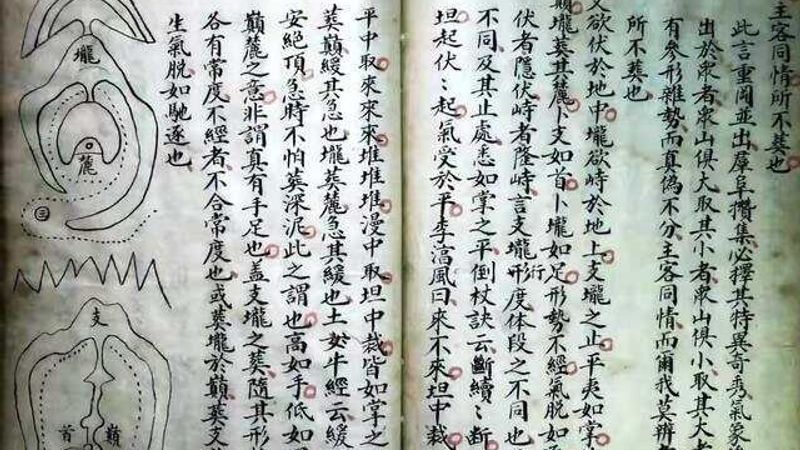 主客同情所不葬也
此言重岡並出羣阜攢集必擇其特異奇秀氣象
出於衆者衆山俱大取其小者衆山俱小取其大者
有參形雜勢而真偽不分主客同情而爾我莫辨
所不葬也
支欲伏於地中壠欲峙於地上支壠之止平夷如掌
巔壠葬其麓卜支如首卜壠如足形勢不經氣脫如
伏者隱伏峙者隆峙言支壠形行度體段之不同也
不同及其止處悉如掌之平倒杖訣云斷續〻斷
坦起伏〻起氣受於平李淳風曰來不來坦中裁
平中取來來來堆堆堆漫中取坦中裁皆如掌之
葬巔緩其急也壠葬麓急其緩也土牛經云緩
安絕頂急時不怕葬深泥此之謂也高如手低如
巔麓之意非謂真有手足也蓋支壠之葬隨其形
各有常度不經者不合常度也或葬壠於巔葬支
生氣脫如馳逐也
壠
麓
支
巔
首